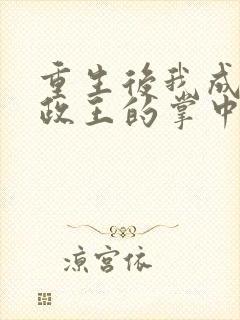 重生後我成
政王的掌中
涼宮依